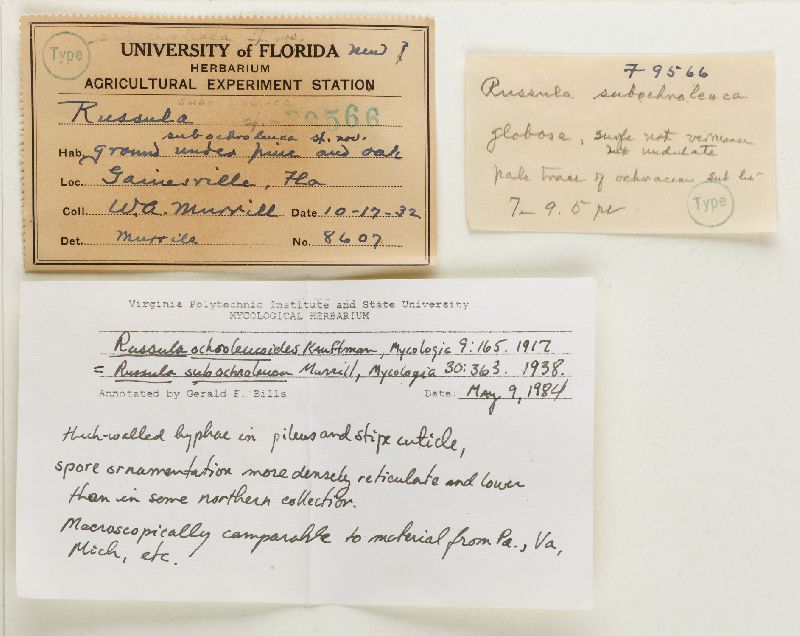 Type
UNIVERSITY of FLORIDA new
HERBARIUM
AGRICULTURAL EXPERIMENT STATION
Russula
subochroleuca sp. nov.
Hab. ground under pine and oak
Loc. Gainesville, Fla
Coll. W.A. Murrill Date 10-17-32
Det. Murrill No. 8607
F 9566
Russula subochroleuca
globose, surfe not verrucose
not undulate
pale trace of ochraceous sub
7-9.5
Type
Virginia Polytechnic Institute and State University
MYCOLOGICAL HERBARIUM
Russula ochroleucoides Kauffman, Mycologia 9:165. 1917
= Russula subochroleuca Murrill, Mycologia 30:363. 1938.
Annotated by Gerald F. Bills Date: May 9, 1984
thick-walled hyphae in pileus and stipe cuticle,
spore ornamentation more densely reticulate and lower
than in some northern collection.
Macroscopically comparable to material from Pa., Va,
Mich, etc.